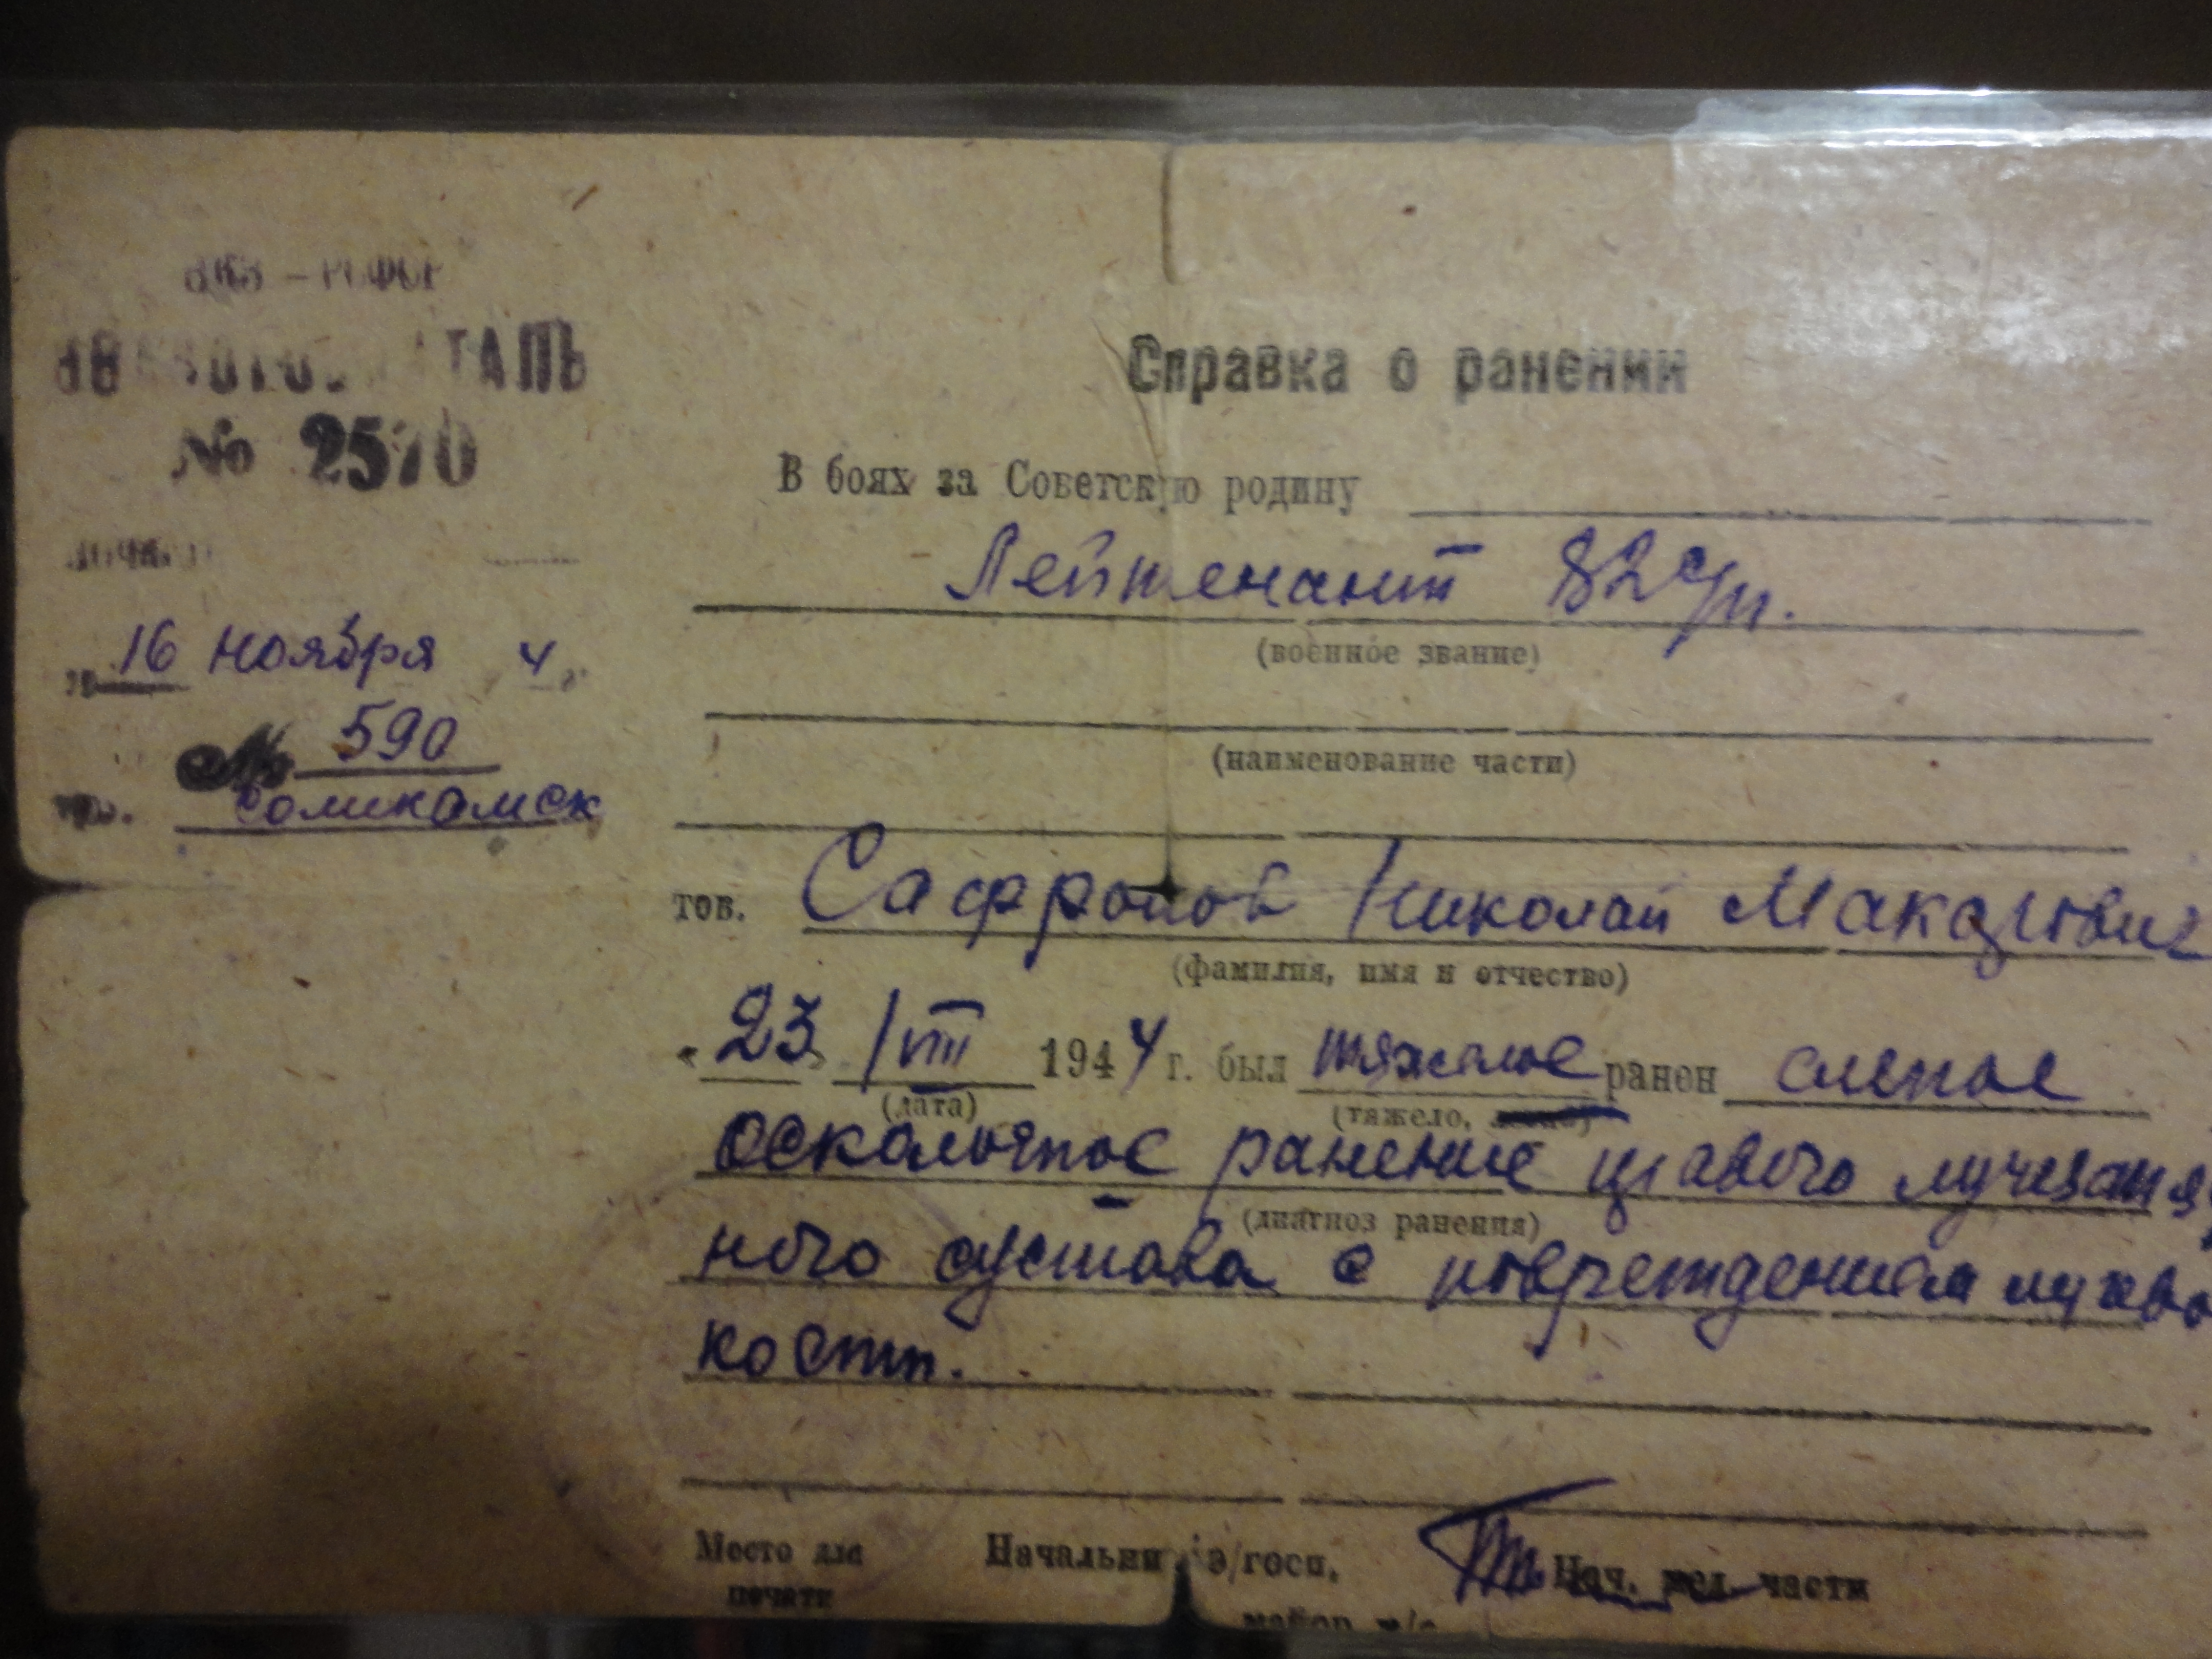 НКЗ – РСФСР
ЭВАКОГОСПИТАЛЬ
№ 2570
16 ноября 4 г.
№ 590
гор. Соликамск
Справка о ранении
В боях за Советскую родину
Лейтенант 82 с/п.
(военное звание)
(наименование части)
тов. Сафронов Николай Макарович
(фамилия, имя и отчество)
«23» /VIII 1944 г. был тяжелое ранен слепое
(дата) (тяжело,
осколочное ранение правого лучезапя
(диагноз ранения)
ного сустава с повреждением
кости.
Место для печати
Начальник э/госп.
Нач. мед. части
майор м/с